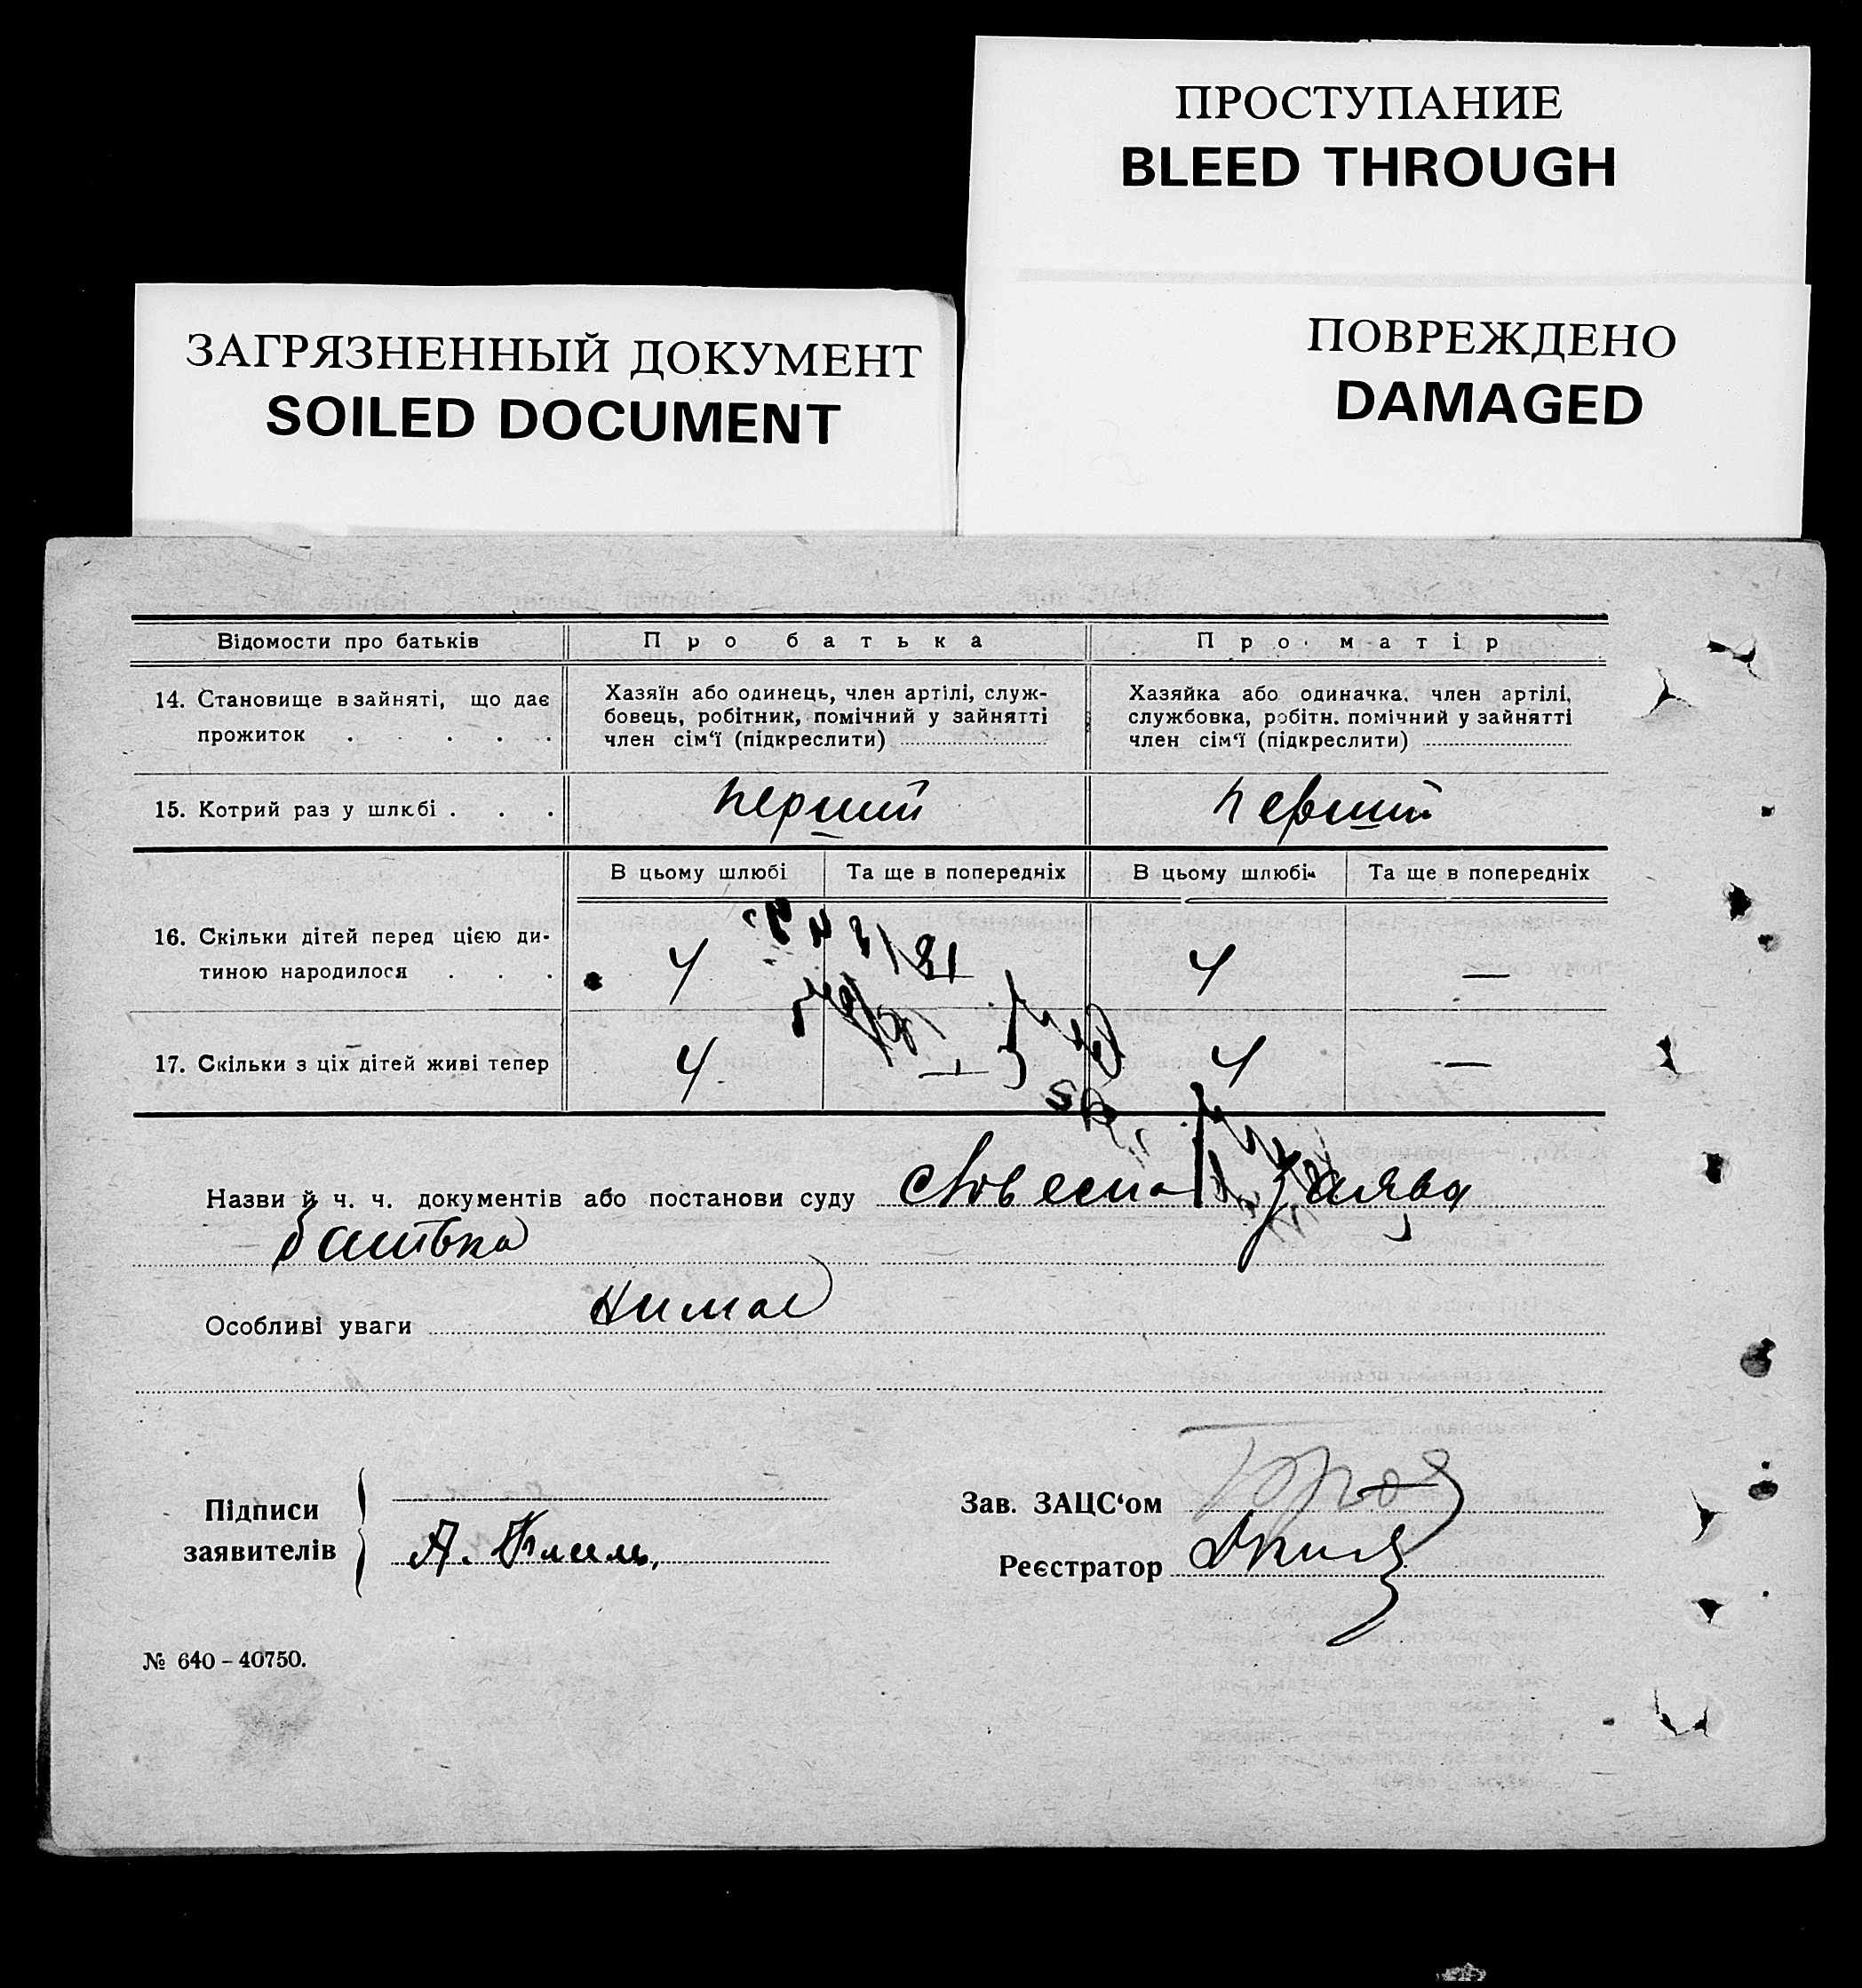 ПРОСТУПАНИЕ
BLEED THROUGH
ПОВРЕЖДЕНО
DAMAGED
ЗАГРЯЗНЕННЫЙ ДОКУМЕНТ
SOILED DOCUMENT
Відомости про батьків Про батька Про матір
14. Становище в зайняті, що дає прожиток . . . . .
Хазяїн або одинець, член артілі, служ-
бовець, робітник, помічний у зайнятті
член сім‘ї (підкреслити)
Хазяйка або одиначка, член артілі,
службовка, робітн. помічний у зайнятті
член сім‘ї (підкреслити)
15. Котрий раз у шлюбі . . . перший перший
В цьому шлюбі Та ще в попередніх В цьому шлюбі Та ще в попередніх
16. Скільки дітей перед цією ди-
тиною народилося . . . 4 — 4 —
17. Скільки з ціх дітей живі тепер 4 — 4 —
Назви й ч. ч. документів або постанови суду словесна заява
батька
Особливі уваги нимає
Підписи
заявителів
А.
Зав. ЗАЦС‘ом
Реєстратор
№ 640 – 40750.